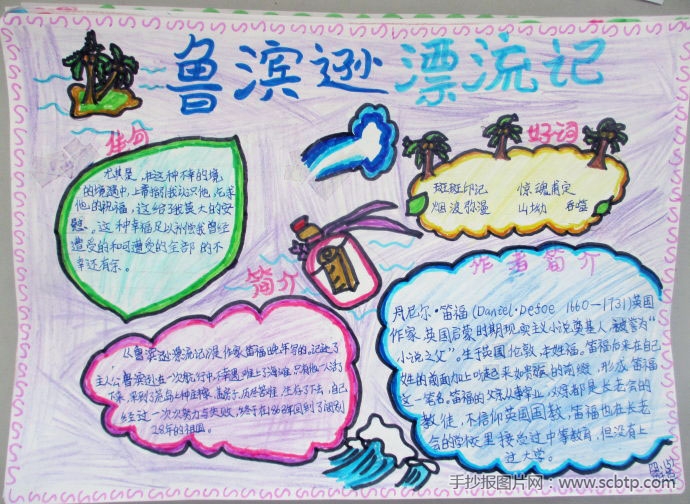 鲁滨逊漂流记
佳句
尤其是，在这种不幸的境
的境遇中，上帝指引我认识他，乞求
他的祝福，这给了我莫大的安
慰。这种幸福足以补偿我曾经
遭受的和可遭受的全部的不
幸还有余。
好词
斑斑印记 惊魂甫定
烟波弥漫 山坳
简介
《鲁滨逊漂流记》是作家笛福晚年写的，记述了
主人公鲁滨逊在一次航行中，不幸遇难上了海难，只有他一人活了
下来，来到了荒岛上种庄稼，盖房子，历尽苦难，生存了下去，自己
经过一次次努力与失败，终于在1686年回到了阔别
28年的祖国。
作者简介
丹尼尔·笛福（Daniel·Defoe 1660—1731）英国
作家，英国启蒙时期现实主义小说奠基人，被誉为“
小说之父”。生于英国伦敦，本姓福。笛福后来在自己
姓的前面加上听起来如贵族的前缀，形成“笛福”
这一笔名，笛福的父亲从事宰业，父亲都是长老会的
教徒，不信仰英国国教，笛福也在长老
会的学校里接受过中等教育，但没有上
过大学。
手抄报图片网 www.scbtp.com